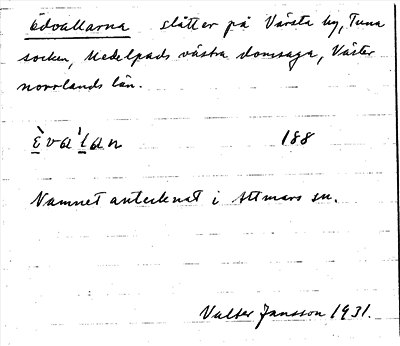 Edvallarna slåtter på Värsta by, Tuna
socken, Medelpads västra domsaga, Väster
norrlands län.
È̱va'ḻan 188
Namnet antecknat i Attmars sn.
Valter Jansson 1931.